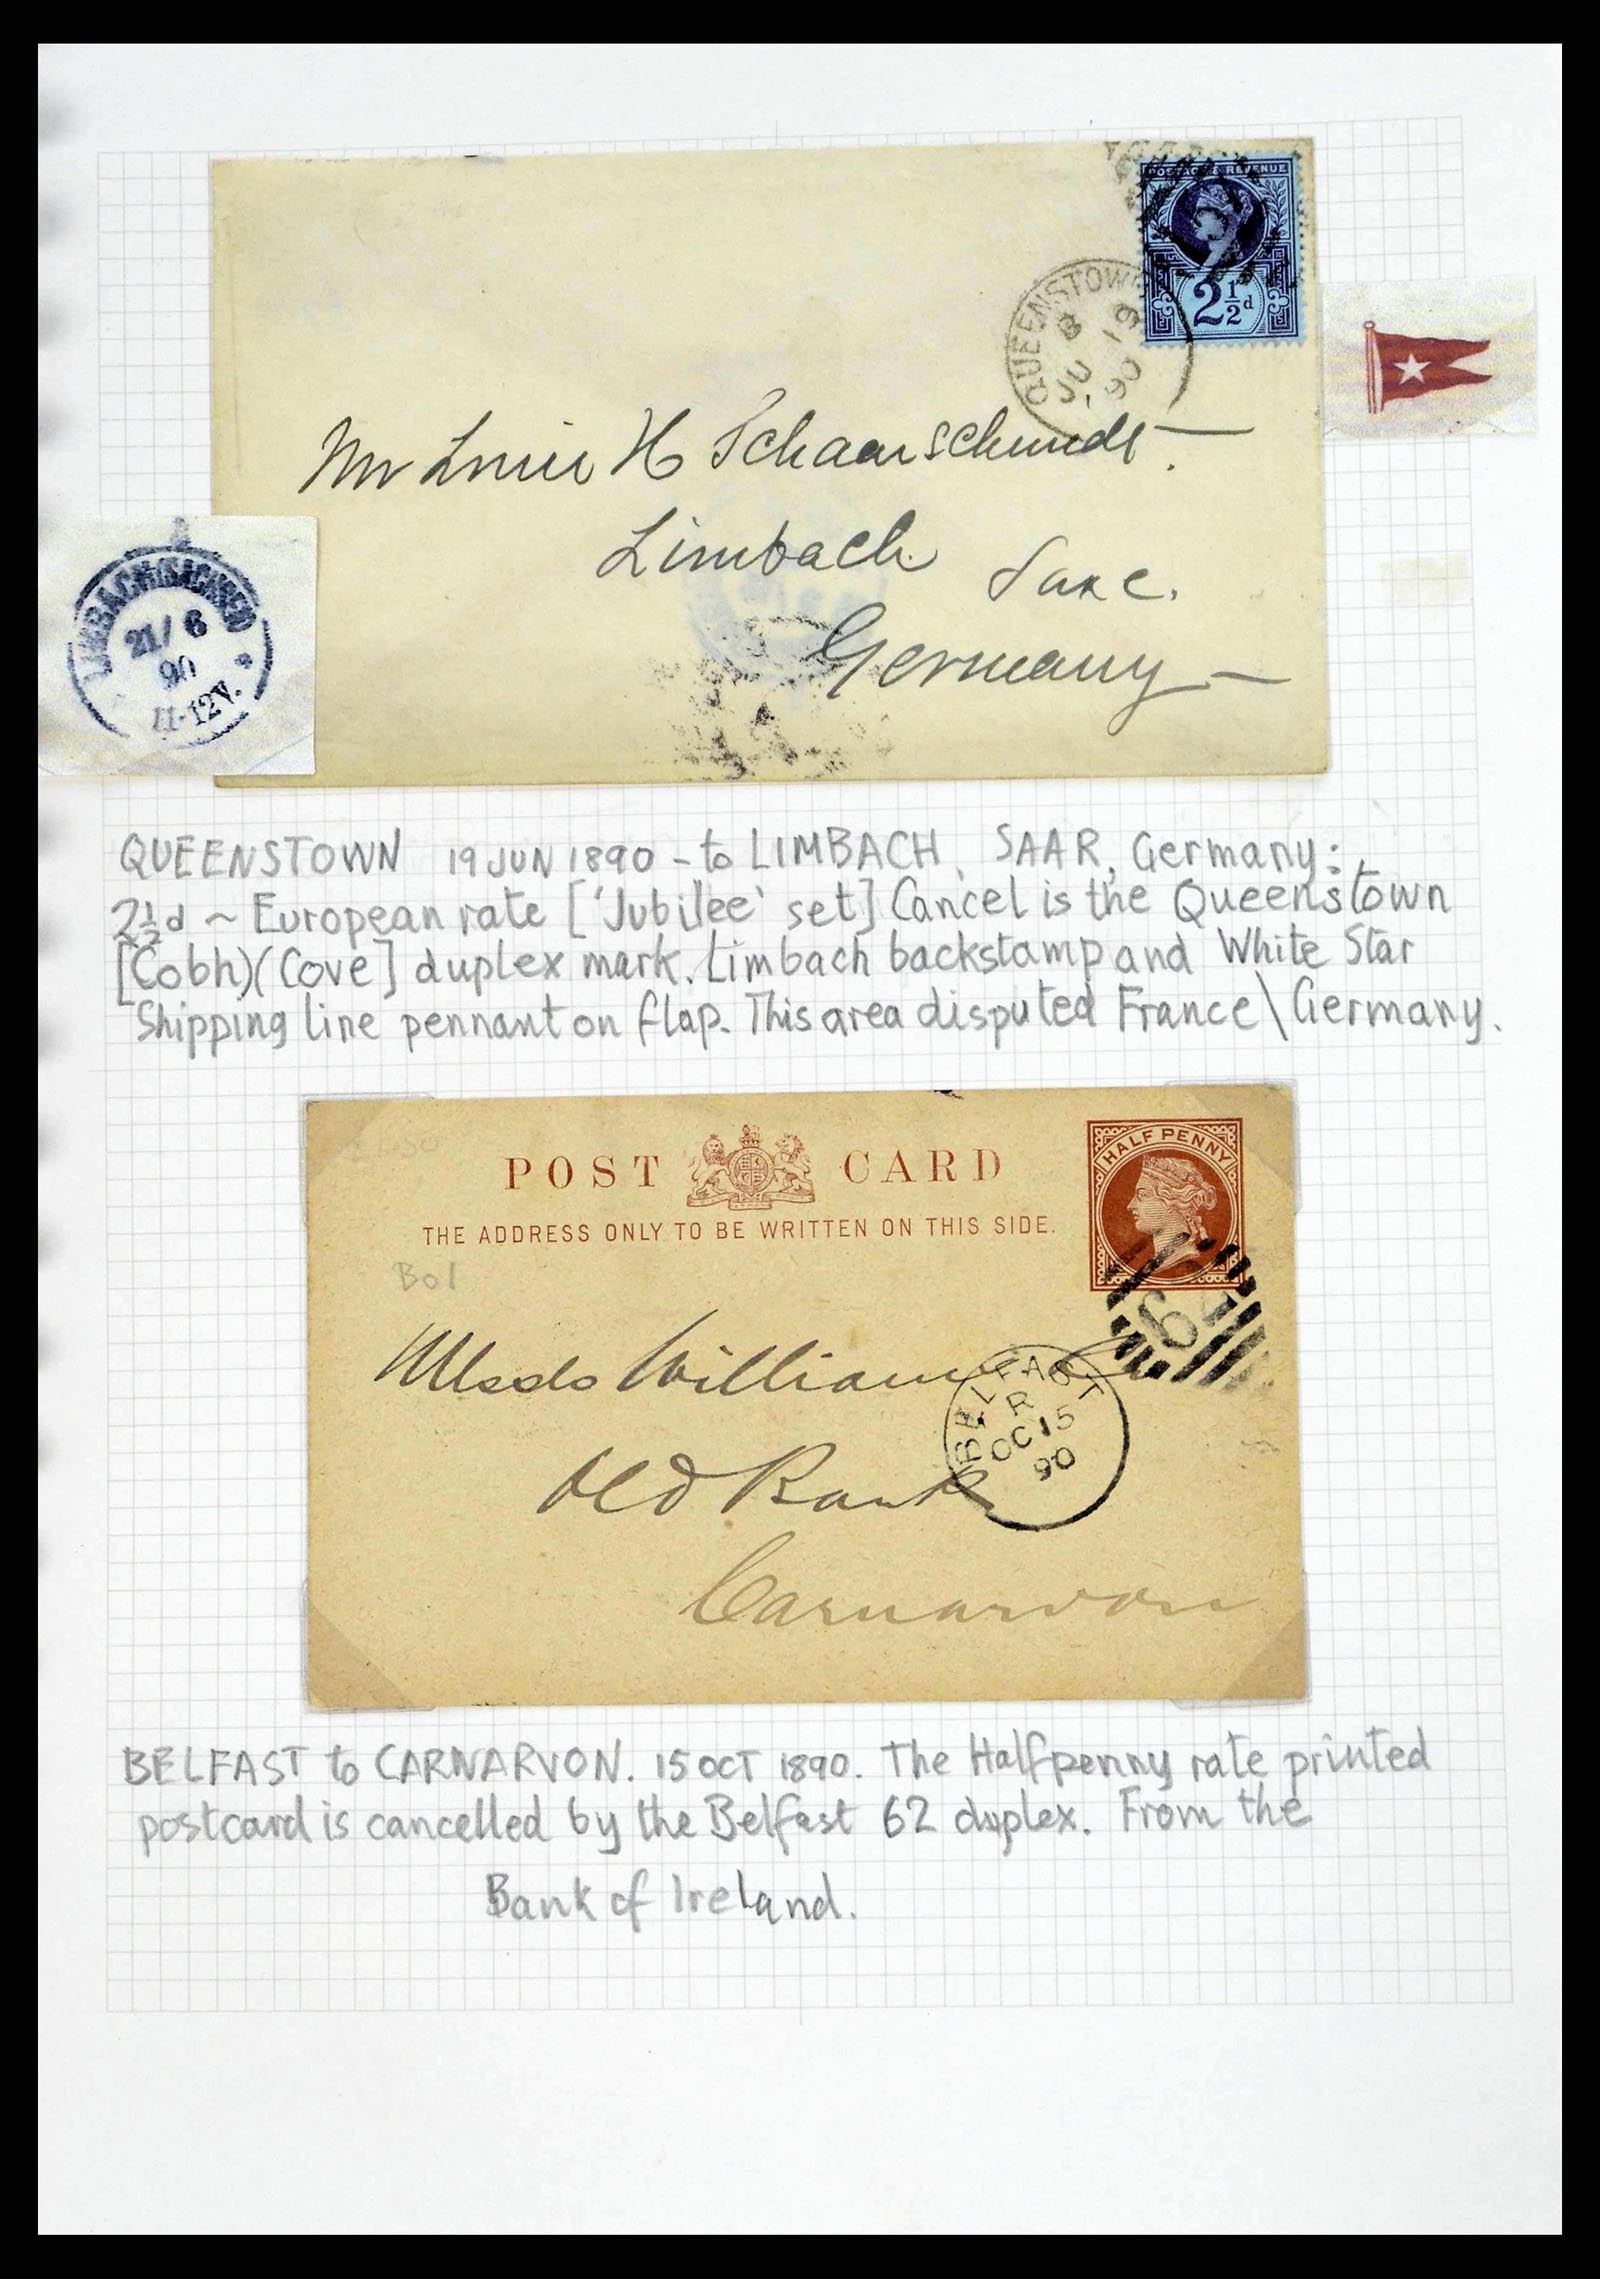 POSTAGE & REVENUE
2½d
QUEENSTOWN
B
JU 19
90
Mr Louis H Schaarschmidt
Limbach
Saxe.
Germany
LIMBACH (SACHSEN)
21/6
90
11-12V.
QUEENSTOWN 19 JUN 1890 - to LIMBACH, SAAR, Germany:
2½d ~ European rate ['Jubilee' set] Cancel is the Queenstown
[Cobh)(Cove] duplex mark. Limbach backstamp and White Star
Shipping line pennant on flap. This area disputed France\Germany.
POST CARD
HALF PENNY
THE ADDRESS ONLY TO BE WRITTEN ON THIS SIDE.
BoI
62
Williams
BELFAST
R
OC 15
90
Old Bank
Carnarvon
BELFAST to CARNARVON. 15 OCT 1890. The Halfpenny rate printed
postcard is cancelled by the Belfast 62 duplex. From the
Bank of Ireland.